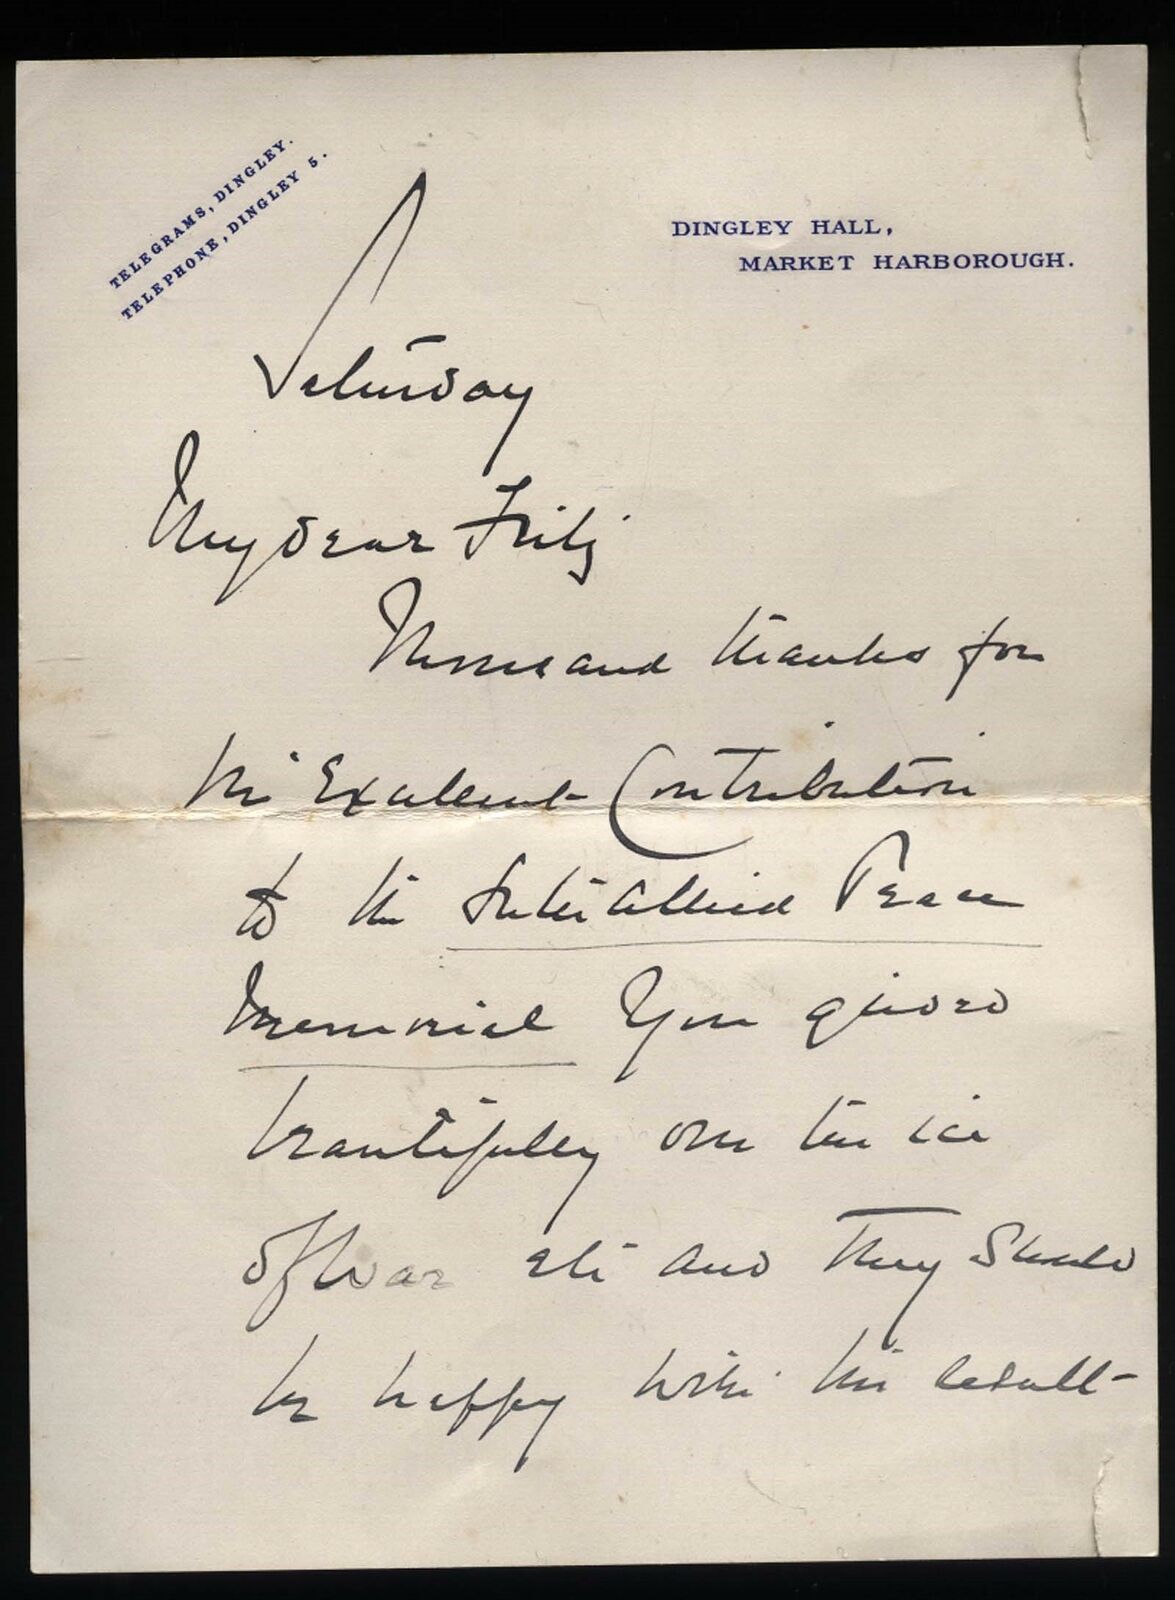 TELEGRAMS, DINGLEY.
TELEPHONE, DINGLEY 5.
DINGLEY HALL,
MARKET HARBOROUGH.
Saturday
My dear Fritz
Thousand thanks for
the Excellent Contribution
to the Inter Allied Peace
Memorial You
beautifully on the ice
of War etc and They Should
be happy with the result